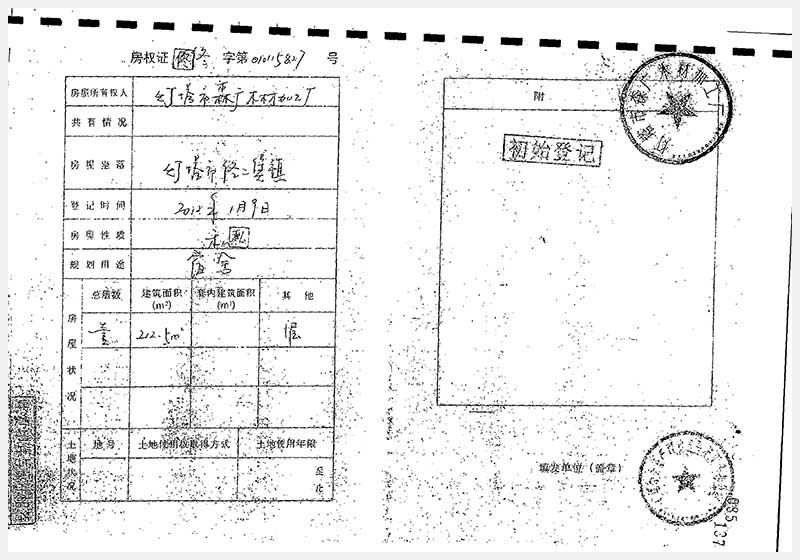 房权证 佟 字第 010115827 号
房屋所有权人 灯塔市森广木材加工厂
共有情况
房屋坐落 灯塔市佟二堡镇
登记时间 2012年1月9日
房屋性质 私
规划用途 宿舍
房屋状况
总层数 建筑面积(m²) 套内建筑面积(m²) 其他
壹 212.5m² 1层
土地状况
地号 土地使用权取得方式 土地使用年限
至
止
附
初始登记
灯塔市森广木材加工厂
填发单位（盖章）
085137